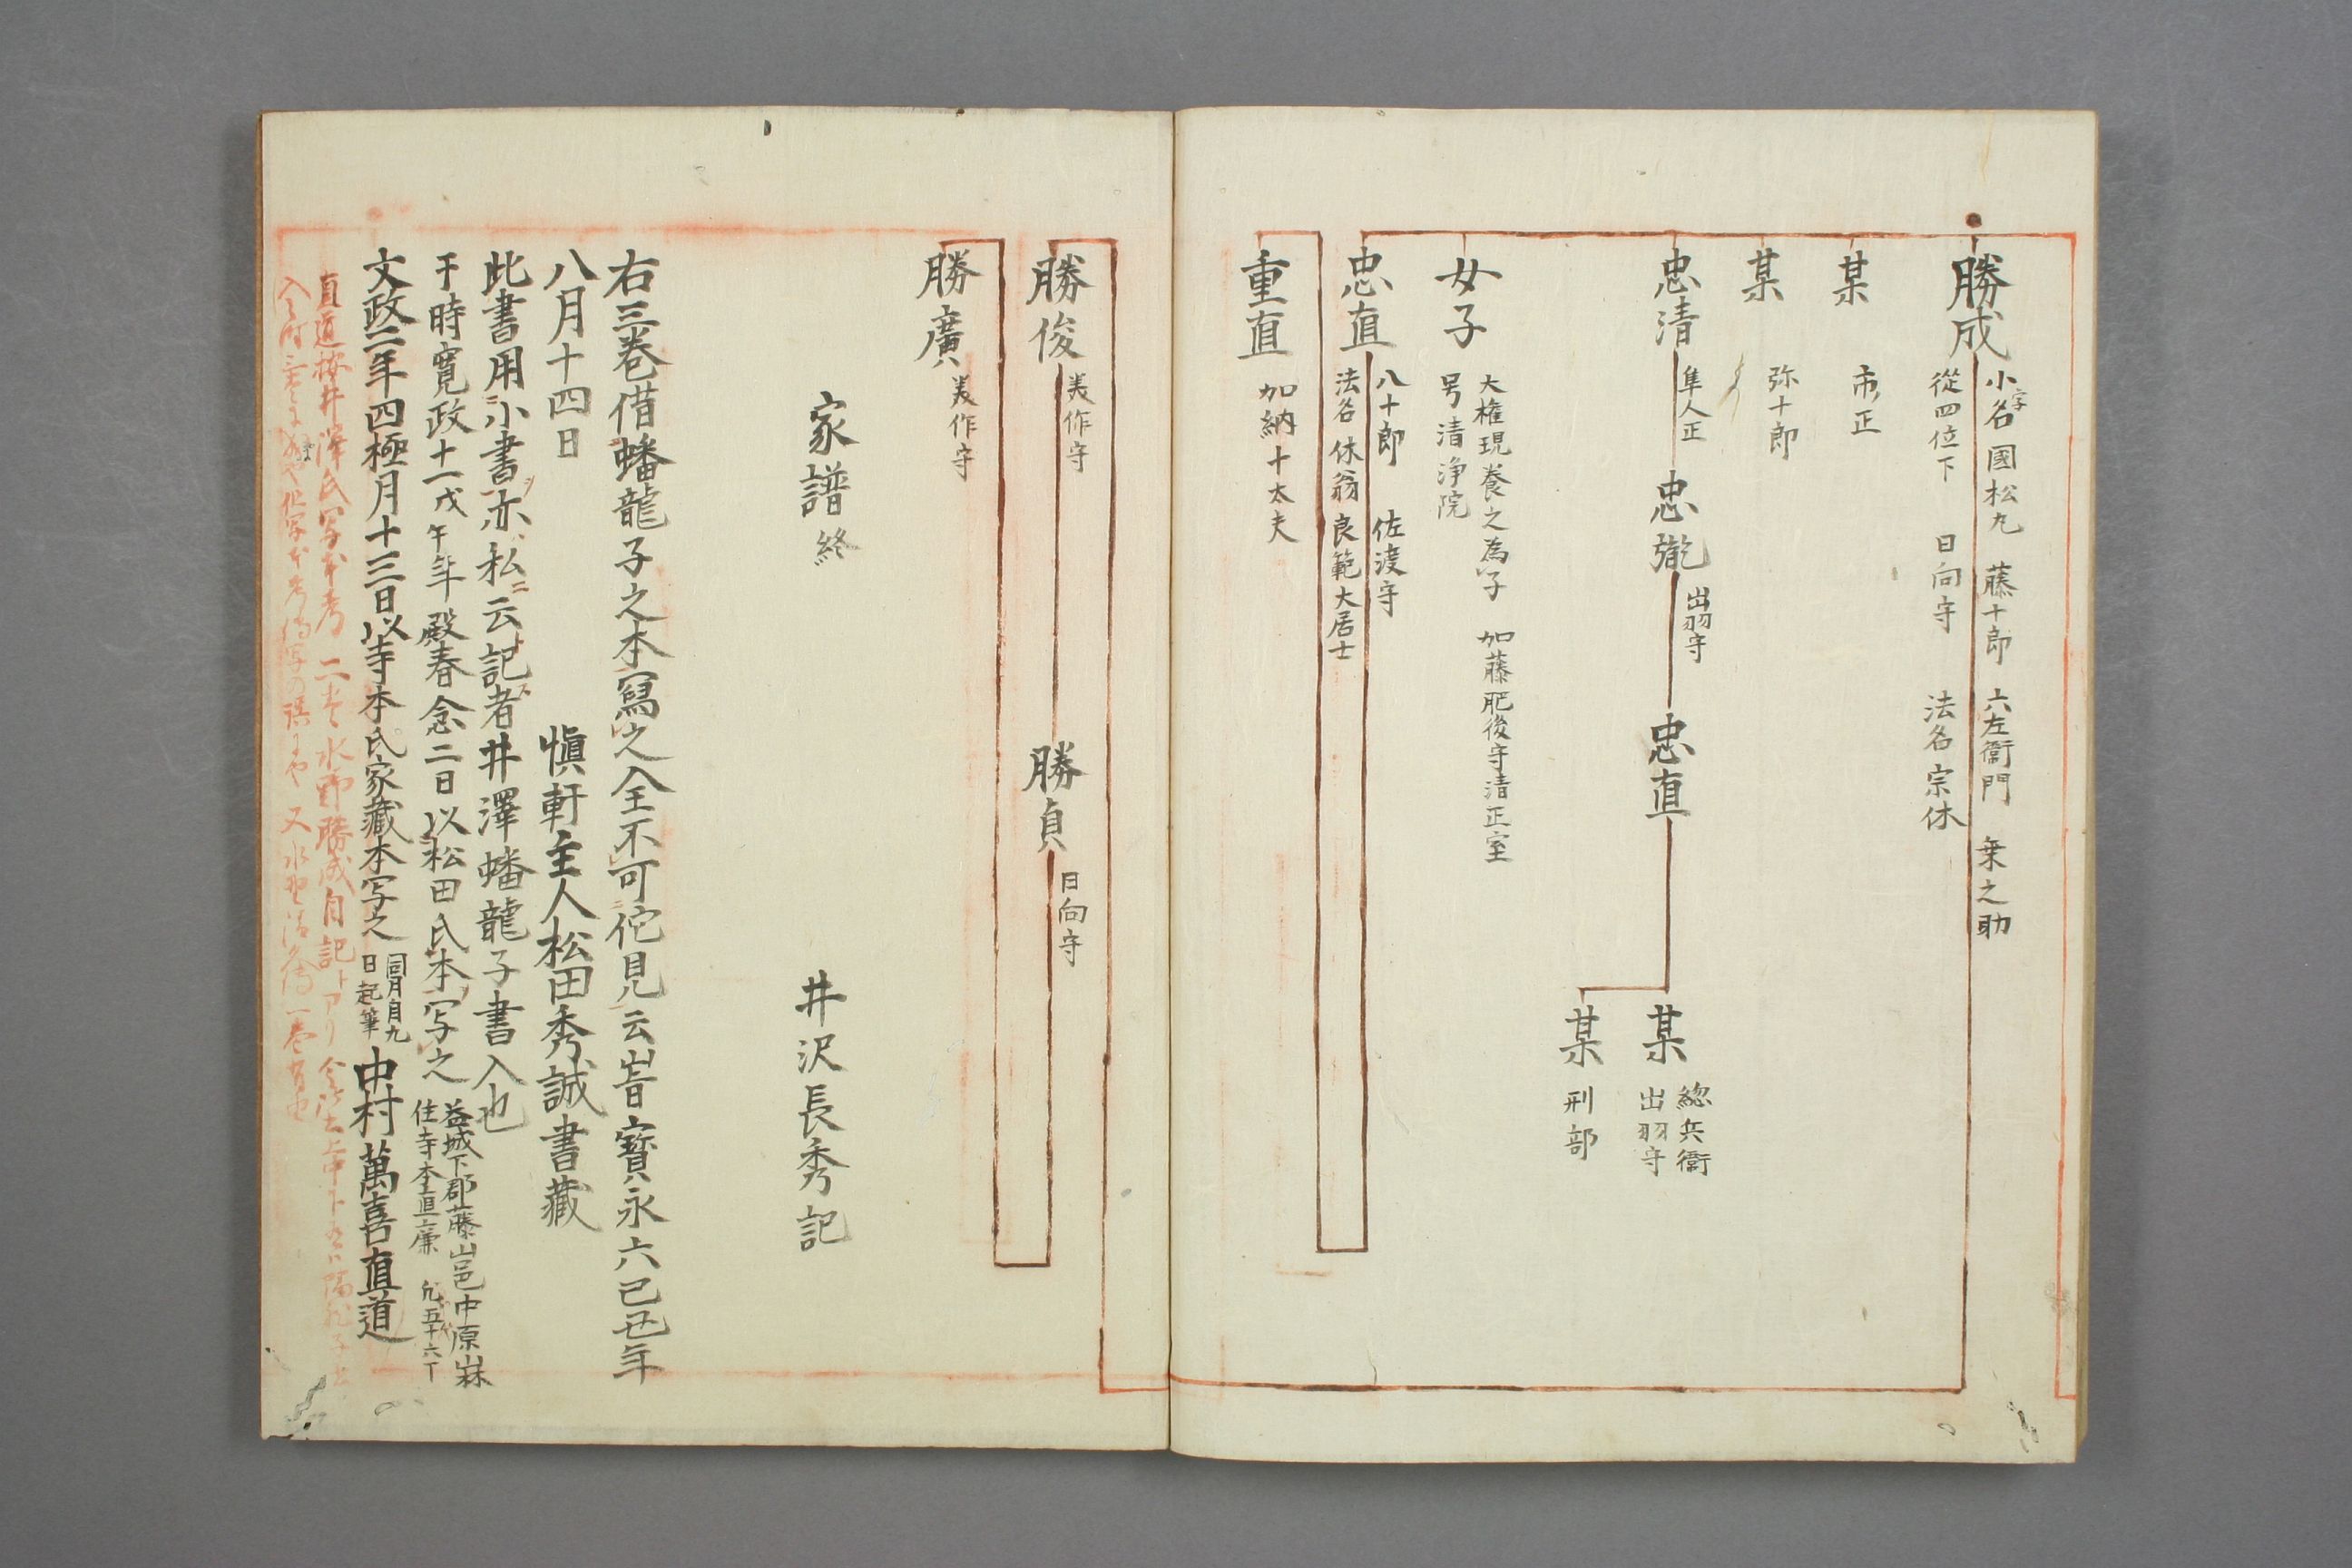 勝成
小字名國松九 藤十郎 六左衞門 乗之助
從四位下 日向守 法名宗休
某 市正
某 弥十郎
忠清 隼人正
忠胤 出羽守
忠直
某 緫兵衞
出羽守
某 刑部
女子
大権現養之為子 加藤肥後守清正室
号清浄院
忠直
八十郎 佐渡守
法名休翁良範大居士
重直 加納十太夫
勝俊 美作守
勝貞 日向守
勝廣 美作守
家譜終
井沢長秀記
右三巻借蟠龍子之本寫之全不可佗見云旹寳永六己丑年
八月十四日
愼軒主人松田秀誠書藏
此書用小書亦私ニ云記者井澤蟠龍子書入也
于時寛政十一戊午年殿春念二日以松田氏本写之
益城下郡藤山邑中原
住寺本直廉
文政二年四極月十三日以寺本氏家藏本写之
同月自九
日起筆
中村萬喜直道
直道按井澤氏写本考 二巻水野勝成自記トアリ